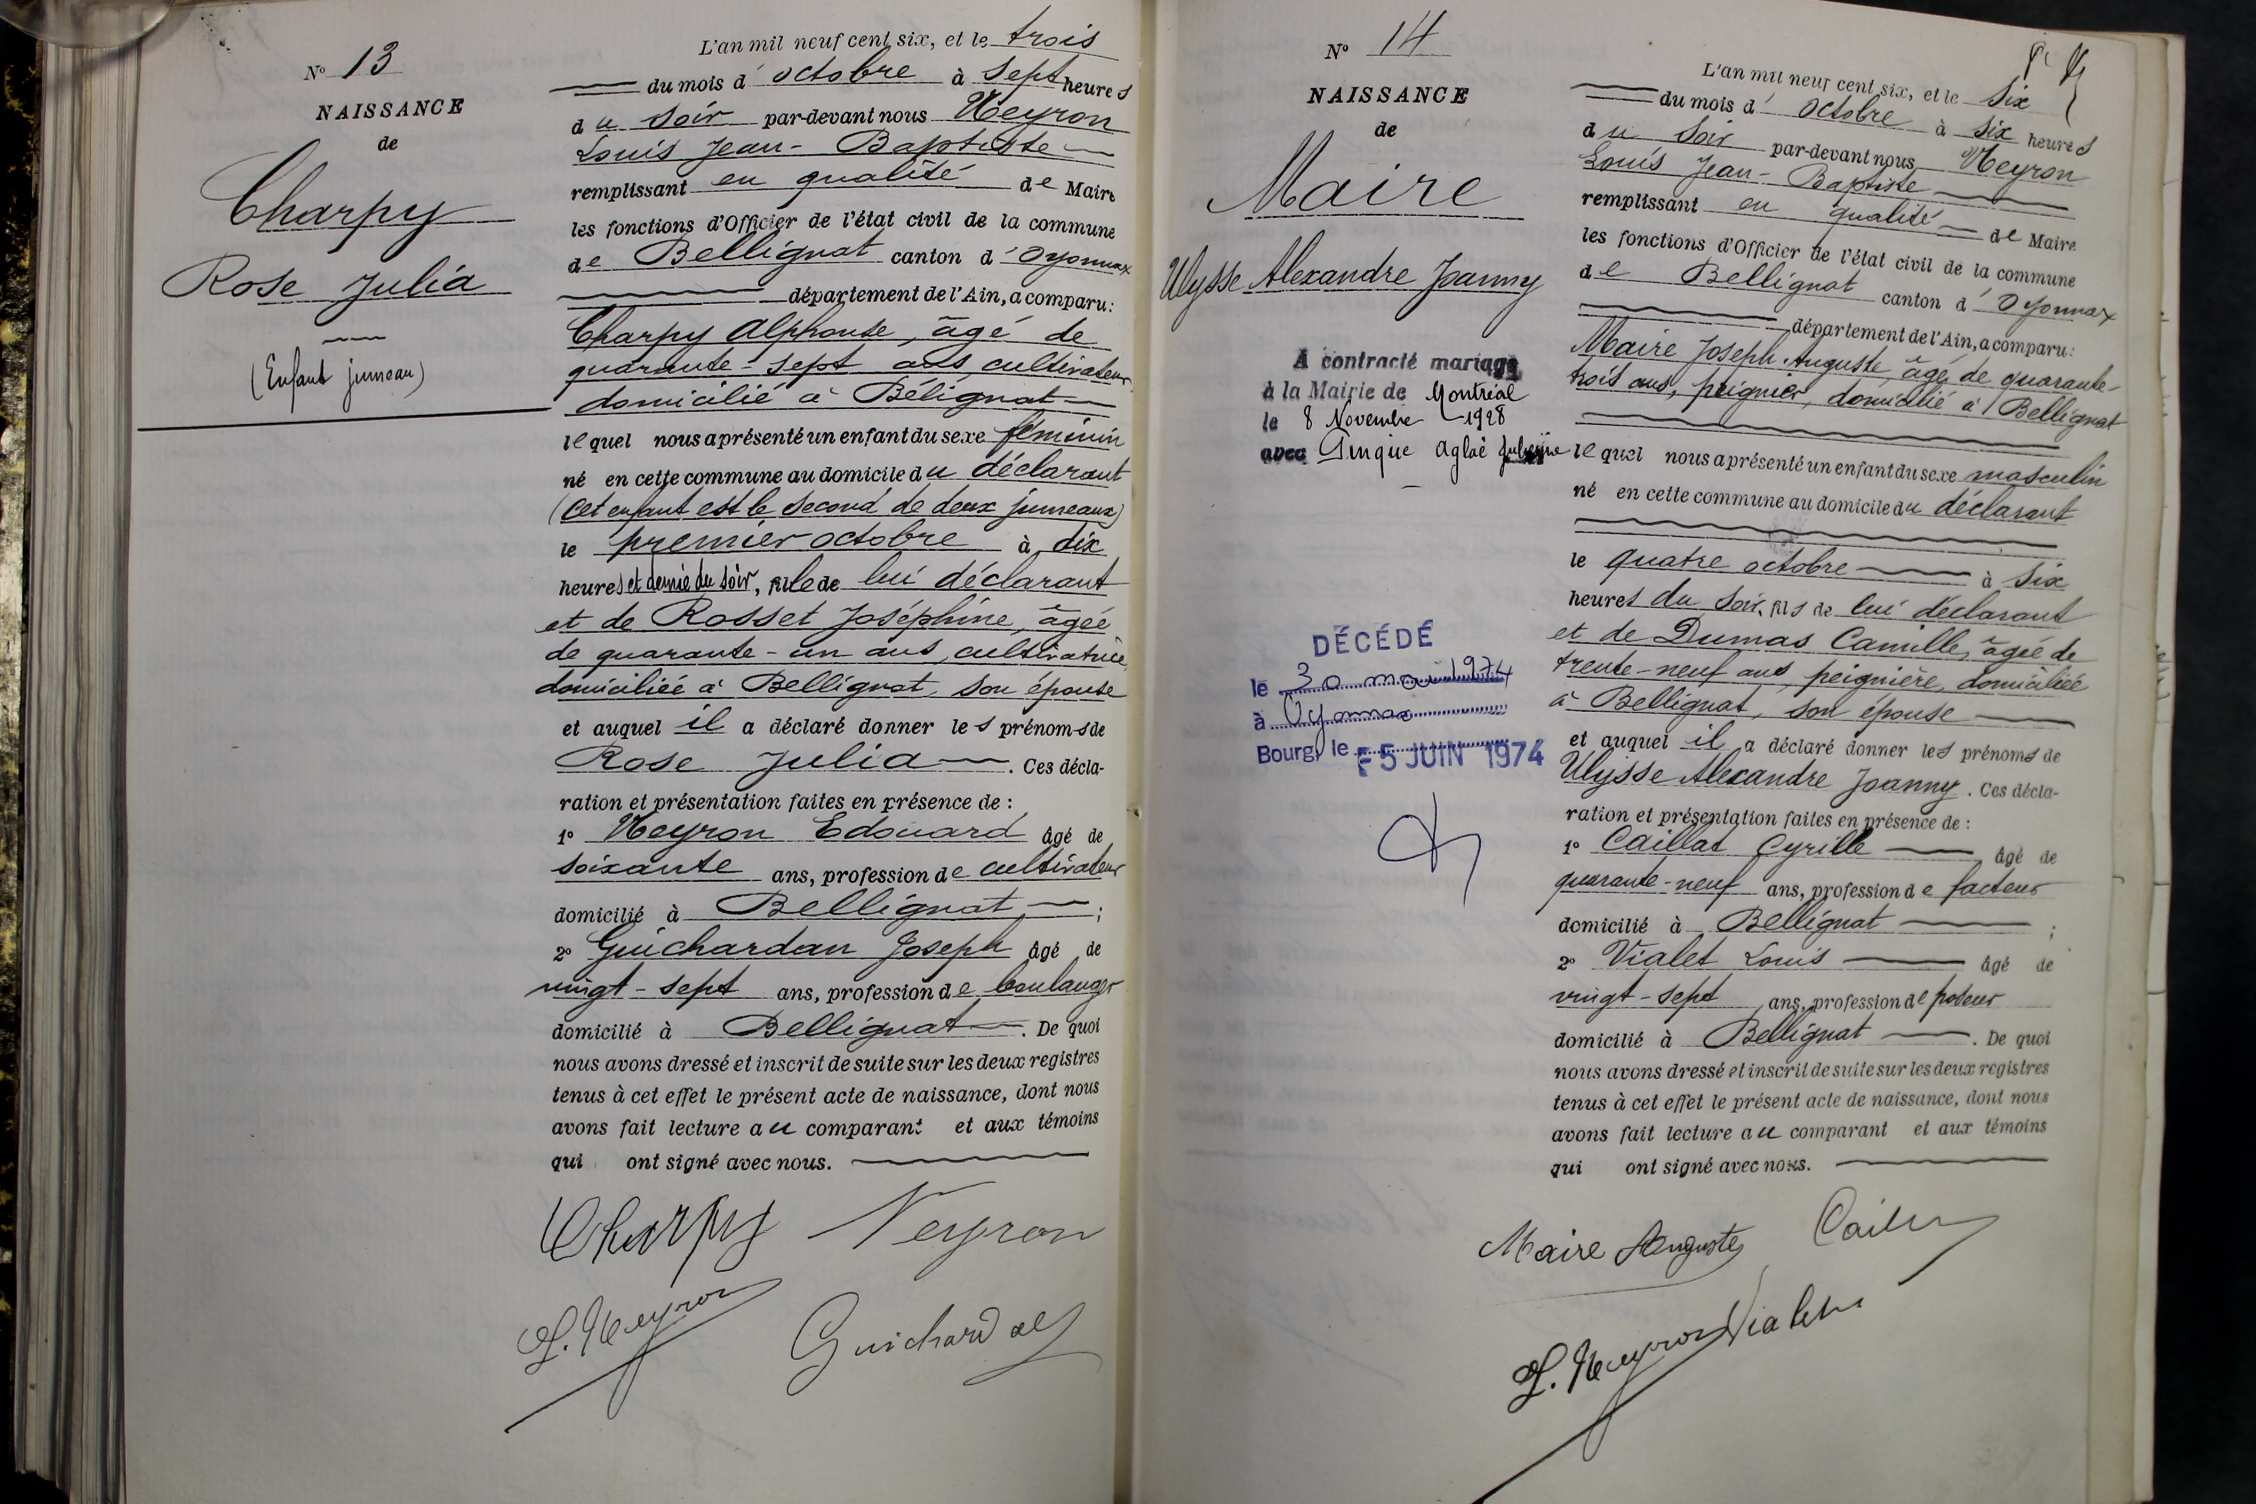 N° 13
NAISSANCE
de
Charpy
Rose Julia
(Enfant jumeau)
L'an mil neuf cent six, et le trois
du mois d'octobre à sept heures
du soir par-devant nous Neyron
Louis Jean-Baptiste
remplissant en qualité de Maire
les fonctions d'Officier de l'état civil de la commune
de Bellignat canton d'Oyonnax
département de l'Ain, a comparu:
Charpy Alphonse, âgé de
quarante-sept ans, cultivateur
domicilié à Bélignat
lequel nous a présenté un enfant du sexe féminin
né en cette commune au domicile du déclarant
(Cet enfant est le second de deux jumeaux)
le premier octobre à dix
heures et demie du soir, fille de lui déclarant
et de Rosset Joséphine, âgée
de quarante-un ans, cultivatrice,
domiciliée à Bellignat, son épouse
et auquel il a déclaré donner les prénoms de
Rose Julia. Ces décla-
ration et présentation faites en présence de :
1° Neyron Edouard âgé de
soixante ans, profession de cultivateur
domicilié à Bellignat ;
2° Guichardan Joseph âgé de
vingt-sept ans, profession de boulanger
domicilié à Bellignat. De quoi
nous avons dressé et inscrit de suite sur les deux registres
tenus à cet effet le présent acte de naissance, dont nous
avons fait lecture au comparant et aux témoins
qui ont signé avec nous.
Charpy Neyron
L. Neyron
N° 14
NAISSANCE
de
Maire
Ulysse Alexandre Joanny
A contracté mariage
à la Mairie de Montréal
le 8 Novembre 1928
avec Aglaé
DÉCÉDÉ
le 30 mai 1974
à Oyonnax
Bourg, le 5 JUIN 1974
L'an mil neuf cent six, et le six
du mois d'octobre à six heures
du soir par-devant nous Neyron
Louis Jean-Baptiste
remplissant en qualité de Maire
les fonctions d'Officier de l'état civil de la commune
de Bellignat canton d'Oyonnax
département de l'Ain, a comparu:
Maire Joseph Auguste âgé de quarante-
trois ans, peignier, domicilié à Bellignat
lequel nous a présenté un enfant du sexe masculin
né en cette commune au domicile du déclarant
le quatre octobre à six
heures du soir, fils de lui déclarant
et de Dumas Camille, âgée de
trente-neuf ans, peignière, domiciliée
à Bellignat, son épouse
et auquel il a déclaré donner les prénoms de
Ulysse Alexandre Joanny. Ces décla-
ration et présentation faites en présence de :
1° Caillat Cyrille âgé de
quarante-neuf ans, profession de facteur
domicilié à Bellignat ;
2° Vialet Louis âgé de
vingt-sept ans, profession de poseur
domicilié à Bellignat. De quoi
nous avons dressé et inscrit de suite sur les deux registres
tenus à cet effet le présent acte de naissance, dont nous
avons fait lecture au comparant et aux témoins
qui ont signé avec nous.
Maire Auguste
L. Neyron